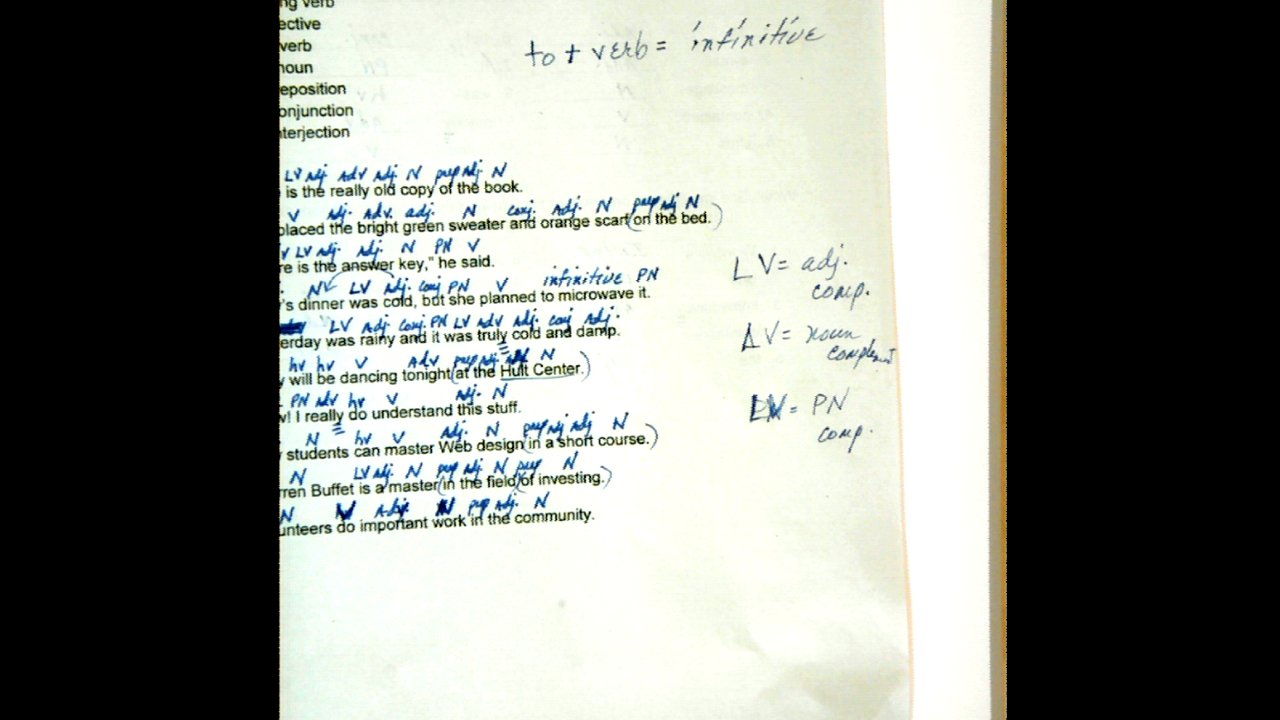 ng verb
ective
verb
noun
eposition
onjunction
nterjection
to + verb = infinitive
LV adj. adv adj. N prep adj. N
is the really old copy of the book.
V adj. Adv. adj. N conj. Adj. N prep adj N
placed the bright green sweater and orange scarf (on the bed.)
V LV adj. Adj. N PN V
re is the answer key," he said.
LV = adj. comp.
N LV Adj. conj PN V infinitive PN
's dinner was cold, but she planned to microwave it.
LV Adj conj. PN LV Adv Adj. conj Adj.
erday was rainy and it was truly cold and damp.
LV = noun complement
hv hv V Adv prep adj. N
will be dancing tonight (at the Hult Center.)
PN adv hv V adj. N
w! I really do understand this stuff.
LV = PN comp.
N hv V Adj. N prep adj adj N
students can master Web design (in a short course.)
N LV adj. N prep adj. N prep N
rren Buffet is a master (in the field) (of investing.)
N V Adj. N prep adj. N
unteers do important work in the community.